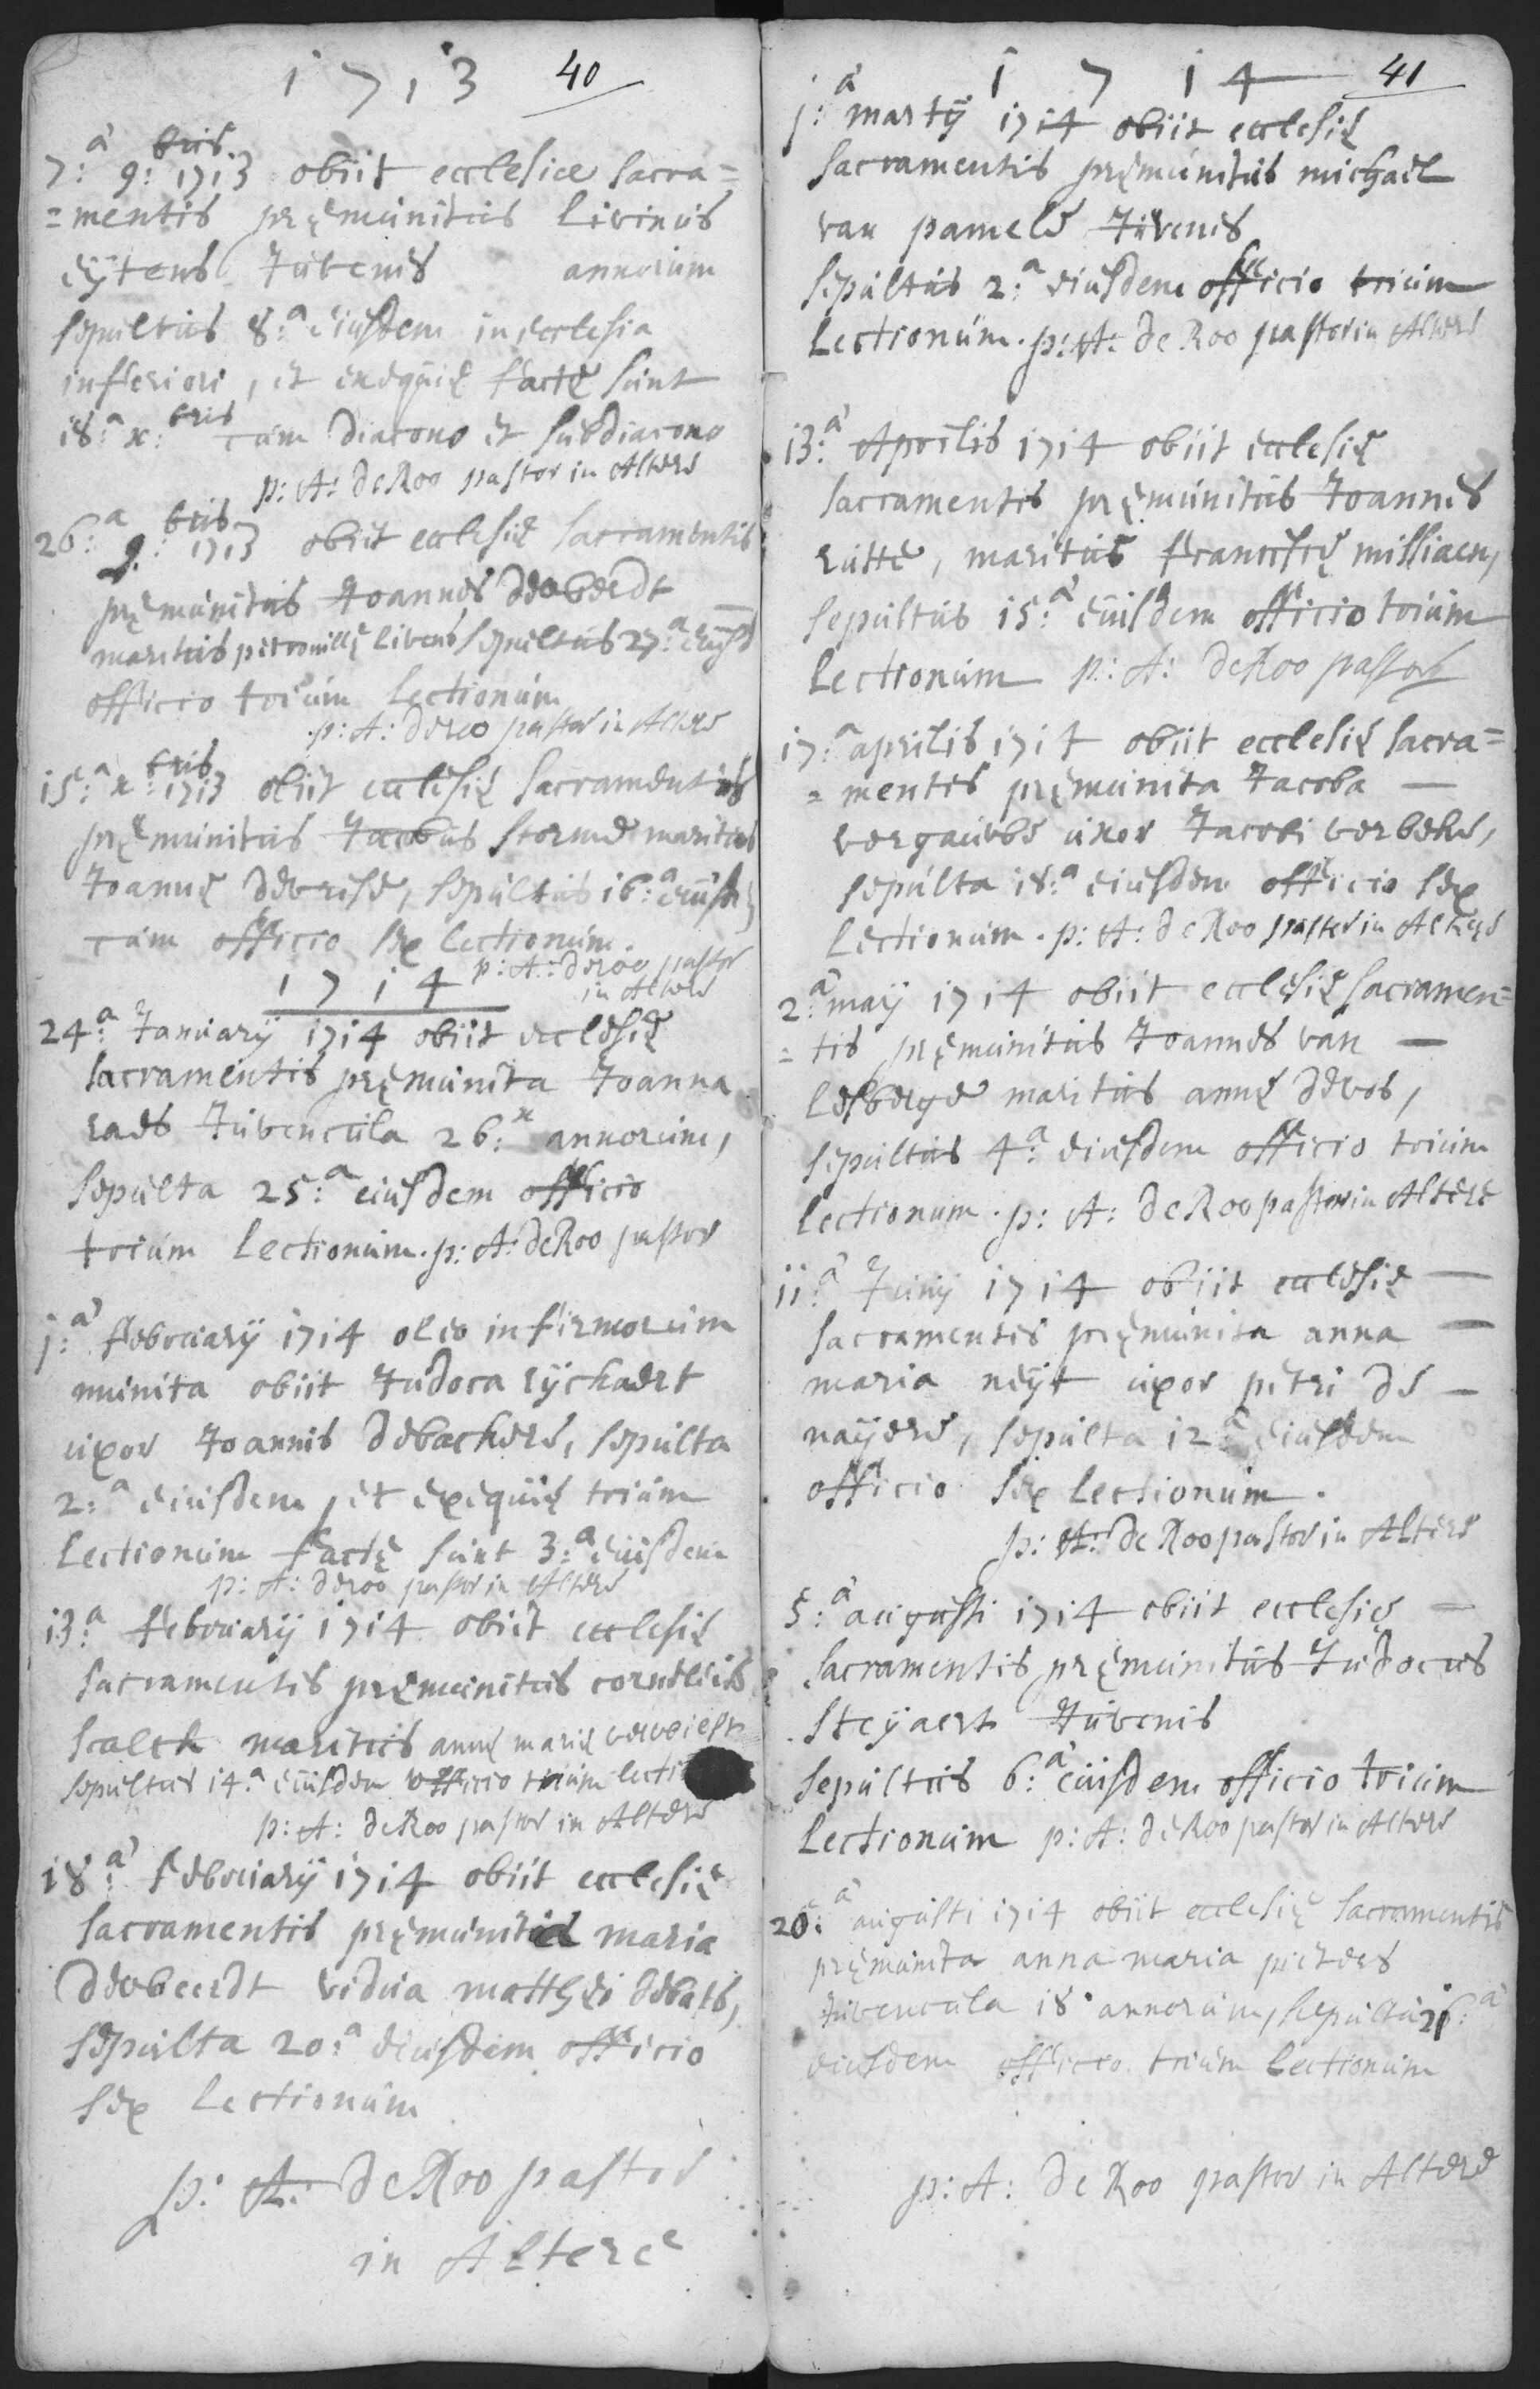 1713 40
7:a 9:bris 1713 obiit ecclesiæ sacra=
=mentis pręmunitus livinus
eÿtens Juvenis annorum
sepultus 8:a eiusdem in ecclesia
inferiori, et exequię factę sunt
18:a x:bris cum diacono et subdiacono
p: A: de Roo pastor in Altere
26:a 9:bris 1713 obiit ecclesię sacramentis
pręmunitus Joannes dobbedt
maritus petronillę livens sepultus 27:a eiusd
officio trium lectionum
p: A: deroo pastor in Altere
15:a x:bris 1713 obiit ecclesię sacramentis
pręmunitus Jacobus storme maritus
Joannę devrise, sepultus 16:a eiusd
cum officio sex lectionum.
p: A: deroo pastor
in Altere
1714
24:a Januarÿ 1714 obiit ecclesię
sacramentis pręmunita Joanna
raes Juvencula 26:x annorum,
sepulta 25:a eiusdem officio
trium lectionum. p: A: de Roo pastor
j:a februarÿ 1714 oleo infirmorum
munita obiit Judoca rÿckaert
uxor Joannis debackere, sepulta
2:a eiusdem, et exequię trium
lectionum factę sunt 3:a eiusdem
p: A: deroo pastor in Altere
13:a februarÿ 1714 obiit ecclesię
sacramentis pręmunitus cornelius
scalck maritus annę marię vervrielst
sepultus 14:a eiusdem officio trium lecti
p: A: de Roo pastor in Altere
18:a februarÿ 1714 obiit ecclesię
sacramentis pręmunita maria
dobbeedt vidua matthęi debats,
sepulta 20:a eiusdem officio
sex lectionum
p: A: de Roo pastor
in Altere
1714 41
j:a martÿ 1714 obiit ecclesię
sacramentis pręmunitus michael
van pamele Juvenis
sepultus 2:a eiusdem officio trium
lectionum. p: A: de Roo pastor in Altere
13:a Aprilis 1714 obiit ecclesię
sacramentis pręmunitus Joannes
rutte, maritus franciscę milliaen,
sepultus 15:a eiusdem officio trium
lectionum p: A: de Roo pastor
17:a aprilis 1714 obiit ecclesię sacra=
=mentis pręmunita Jacoba —
vergauwe uxor Jacobi verbeke,
sepulta 18:a eiusdem officio sex
lectionum. p: A: de Roo pastor in Altere
2:a maÿ 1714 obiit ecclesię sacramen=
=tis pręmunitus Joannes van —
lesberge maritus annę devos,
sepultus 4:a eiusdem officio trium
lectionum. p: A: de Roo pastor in Altere
11:a Junÿ 1714 obiit ecclesię —
sacramentis pręmunita anna —
maria neÿt uxor petri de —
naÿere, sepulta 12:a eiusdem
officio sex lectionum.
p: A: de Roo pastor in Altere
5:a augusti 1714 obiit ecclesię —
sacramentis pręmunitus Judocus
steÿaert Juvenis
sepultus 6:a eiusdem officio trium
lectionum p: A: de Roo pastor in Altere
20:a augusti 1714 obiit ecclesię sacramentis
pręmunita anna maria pieters
Juvencula 18 annorum, sepulta 21:a
eiusdem officio trium lectionum
p: A: de Roo pastor in Altere